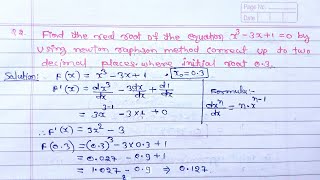 Page No.
Date
Q2. Find the real root of the equation x³-3x+1=0 by
using newton raphson method correct up to two
decimal places where initial root 0.3.
Solution:- F(x) = x³-3x+1 · x₀=0.3
F'(x) = dx³/dx - 3dx/dx + d1/dx
Formula:-
dxⁿ/dx = n·xⁿ⁻¹
= 3x³⁻¹ - 3×1 + 0
∴ F'(x) = 3x²-3
F(0.3) = (0.3)³ - 3×0.3 + 1
= 0.027 - 0.9 + 1
= 1.027 - 0.9 ⇒ 0.127